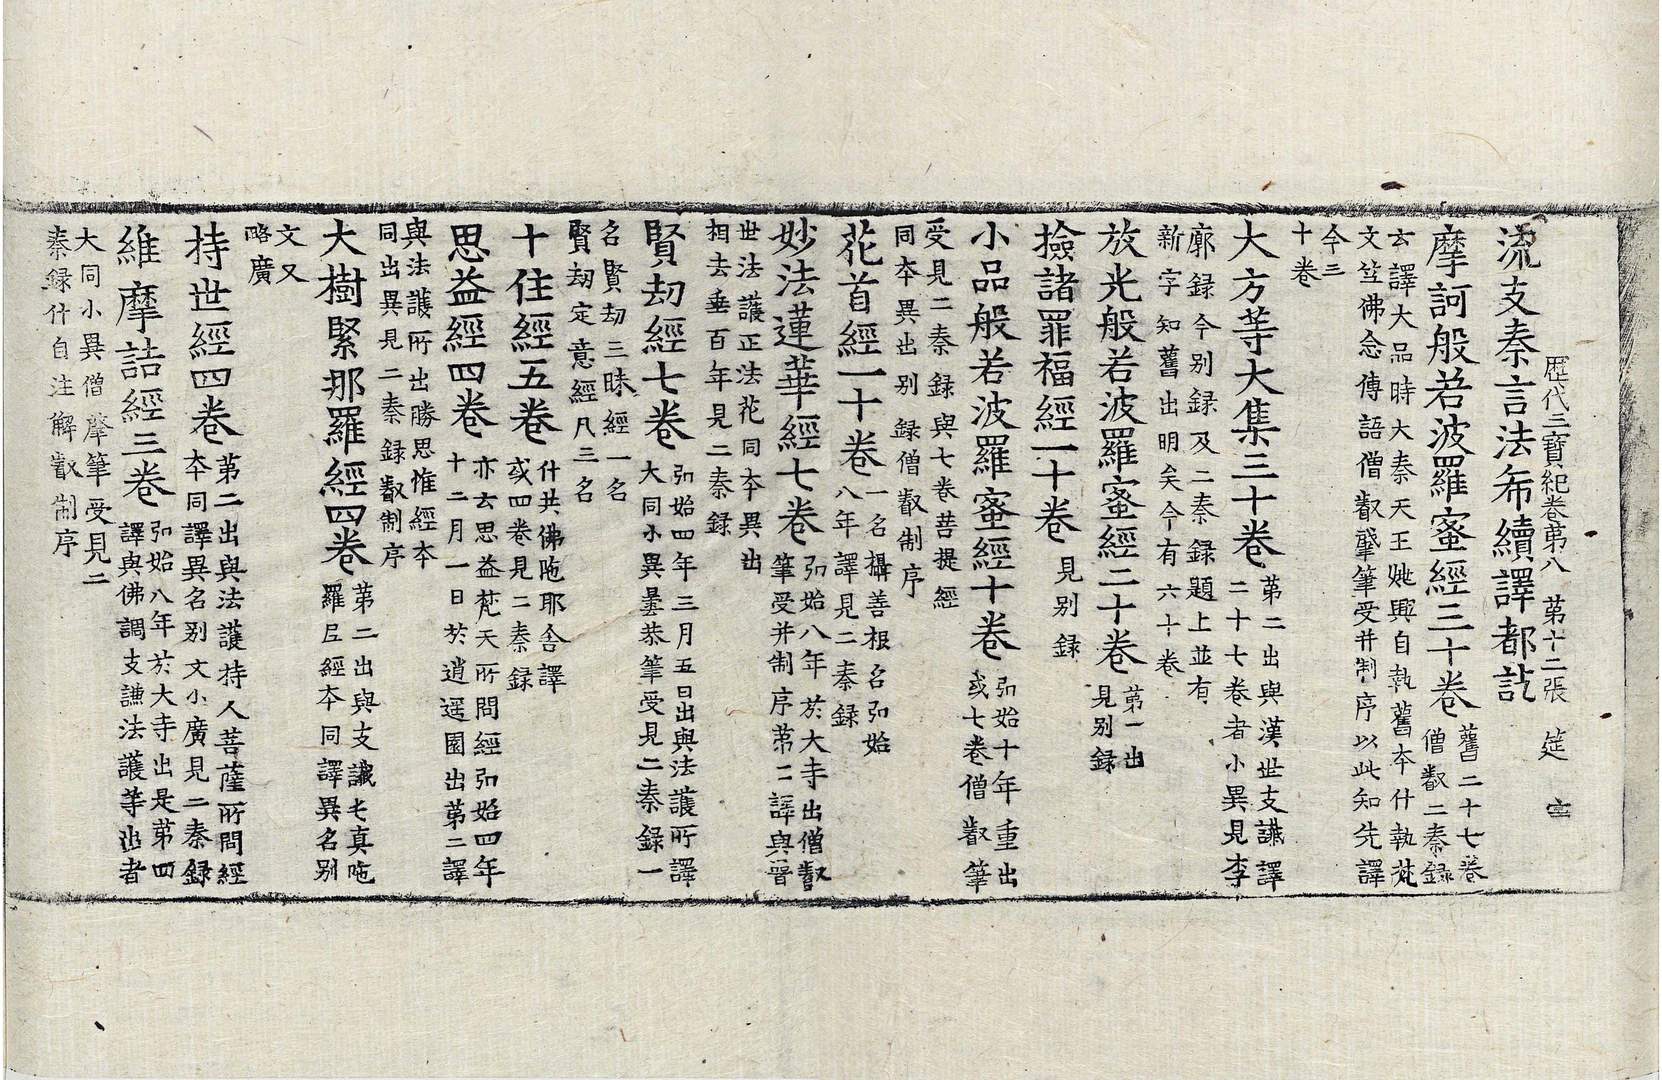 歷代三寶紀卷第八　第十二張　筵　𡧃
流支秦言法希續譯都訖
摩訶般若波羅蜜經三十卷
舊二十七卷
僧叡二秦録
云譯大品時大秦天王姚興自執舊本什執梵
文竺佛念傳語僧叡肇筆受并制序以此知先譯
今三
十卷
大方等大集三十卷
第二出與漢世支讖譯
二十七卷者小異見李
廓録今别録及二秦録題上並有
新字知舊出明矣今有六十卷
放光般若波羅蜜經二十卷
第一出
見别録
撿諸罪福經一十卷
見别録
小品般若波羅蜜經十卷
弘始十年重出
或七卷僧叡筆
受見二秦録與七卷菩提經
同本異出别録僧叡制序
花首經一十卷
一名攝善根名弘始
八年譯見二秦録
妙法蓮華經七卷
弘始八年於大寺出僧叡
筆受并制序第二譯與晉
世法護正法花同本異出
相去垂百年見二秦録
賢刧經七卷
弘始四年三月五日出與法護所譯
大同小異曇恭筆受見二秦録一
名賢刧三昧經一名
賢刧定意經凡三名
十住經五卷
什共佛陁耶舍譯
或四卷見二秦録
思益經四卷
亦云思益梵天所問經弘始四年
十二月一日於逍遥園出第二譯
與法護所出勝思惟經本
同出異見二秦録叡制序
大樹緊那羅經四卷
第二出與支讖屯真陁
羅尼經本同譯異名别
文又
略廣
持世經四卷
第二出與法護持人菩薩所問經
本同譯異名别文小廣見二秦録
維摩詰經三卷
弘始八年於大寺出是第四
譯與佛調支謙法護等出者
大同小異僧肇筆受見二
秦録什自注解叡制序